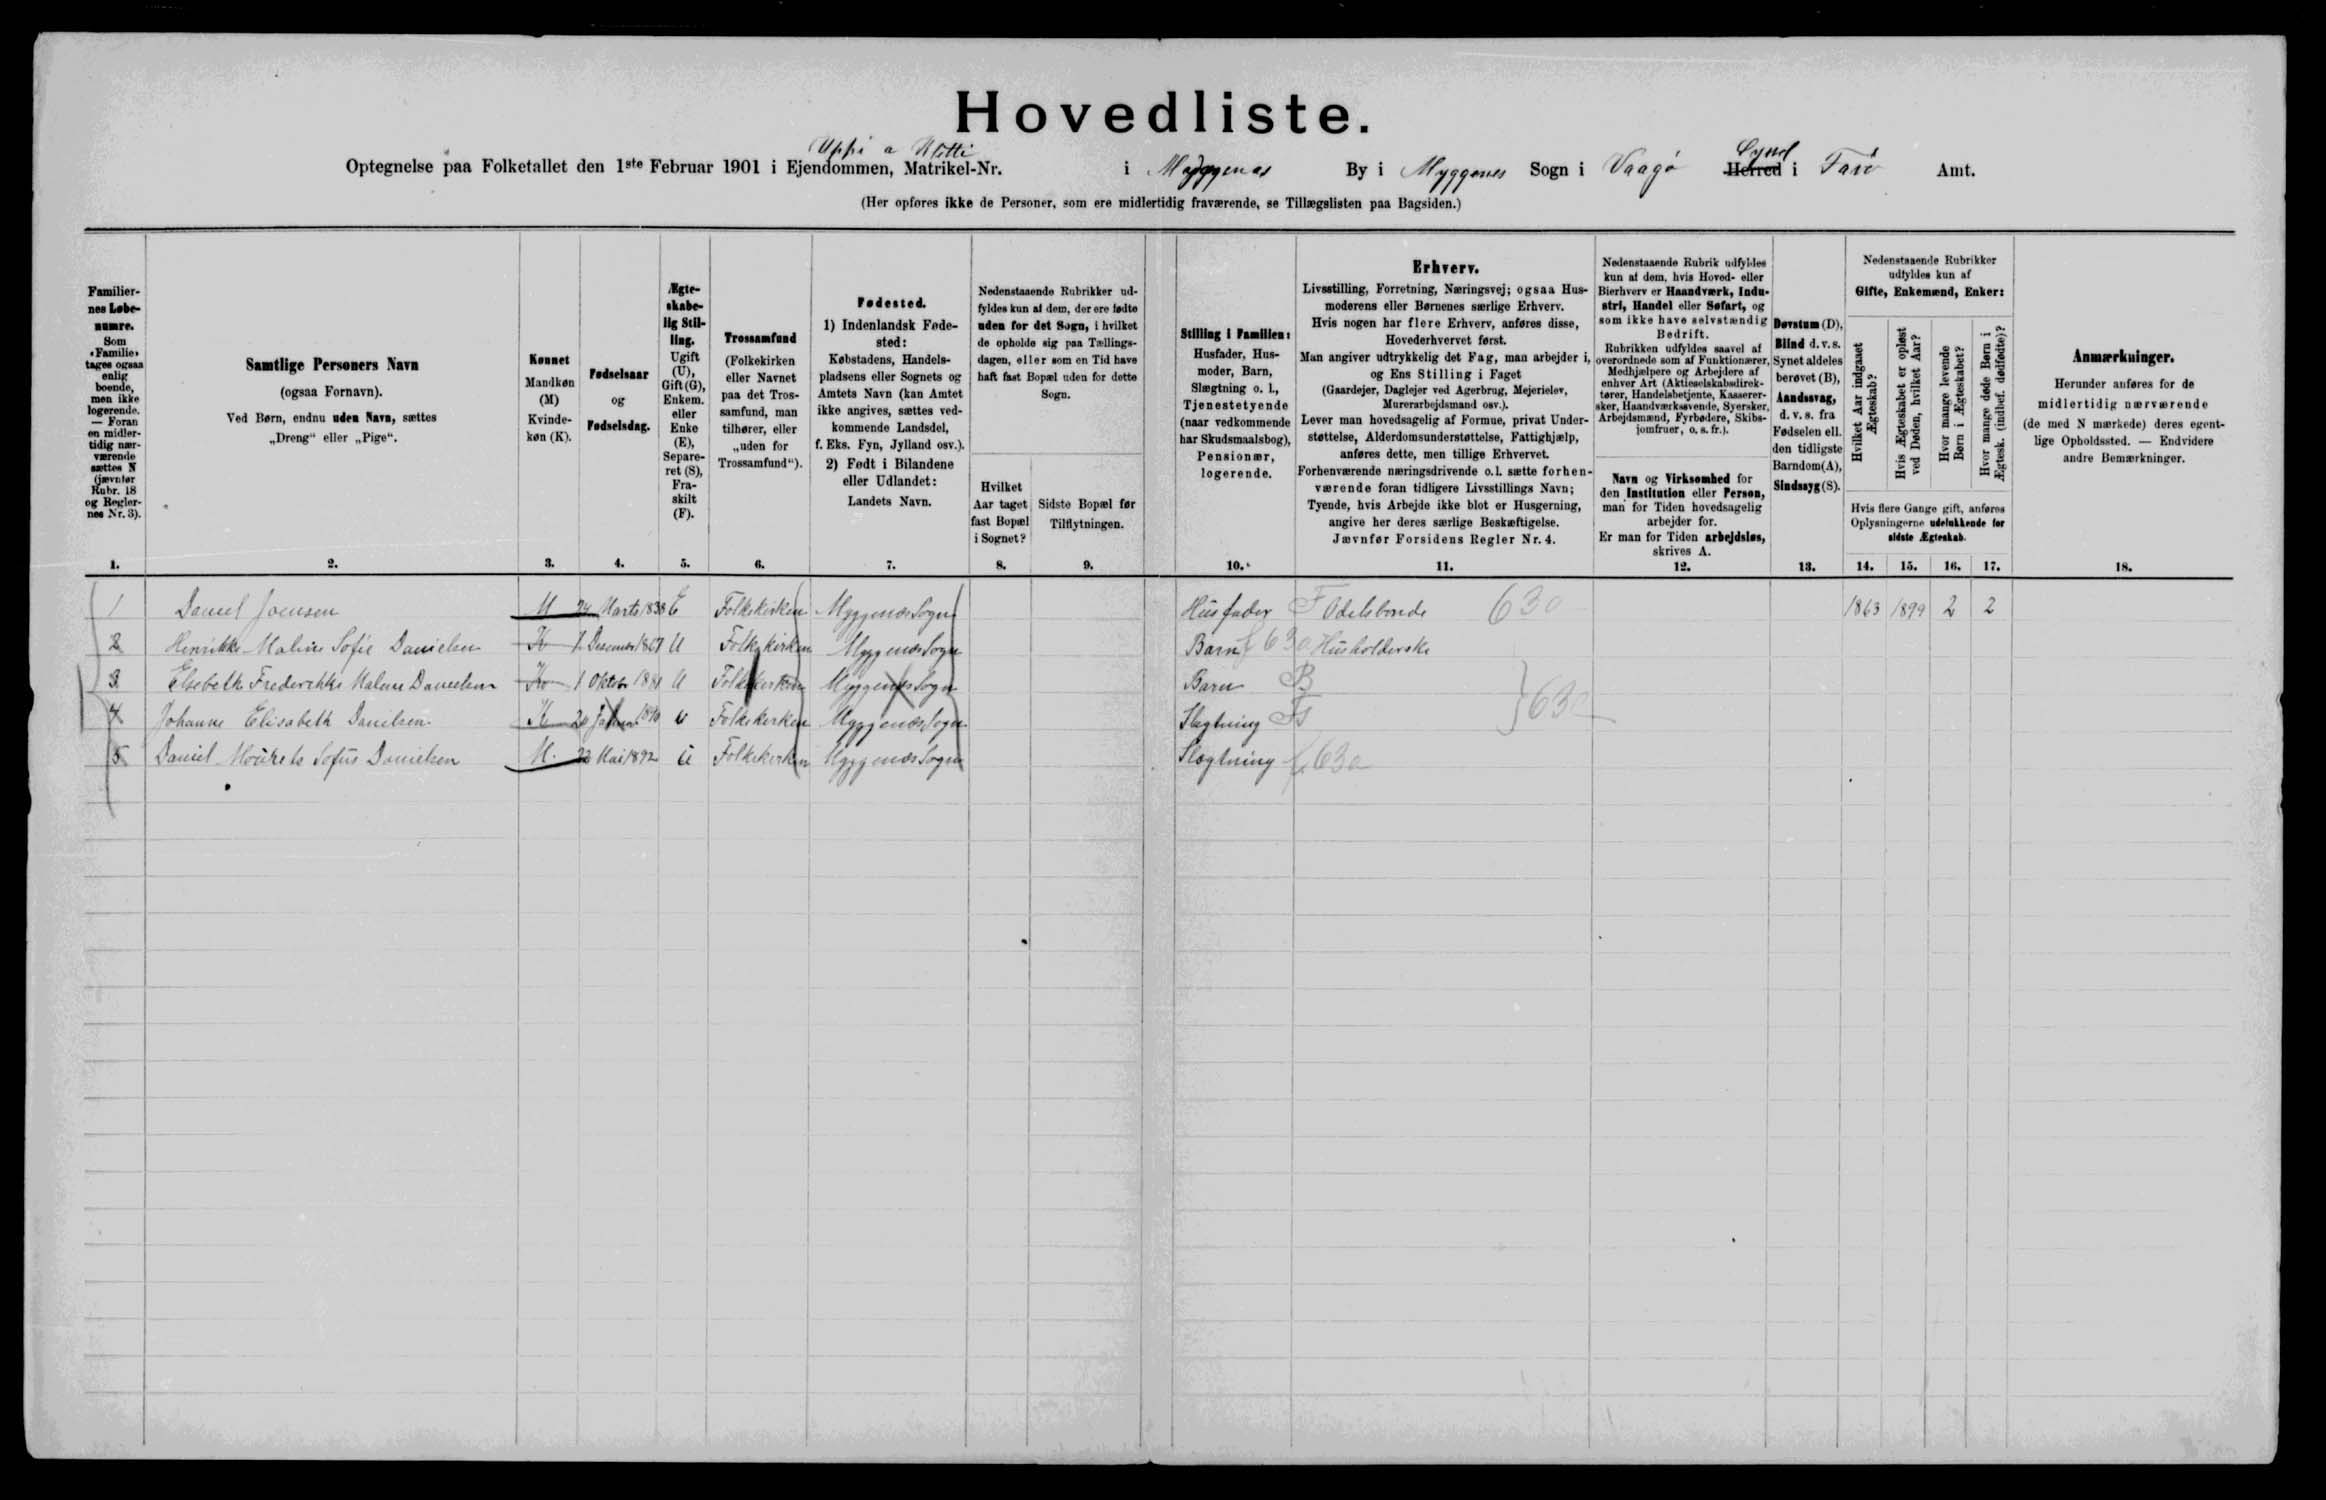 Hovedliste.
Uppi a Kletti
Optegnelse paa Folketallet den 1ste Februar 1901 i Ejendommen, Matrikel-Nr. i Myggenæs By i Myggenæs Sogn i Vaagø Herred Syssel i Færø Amt.
(Her opføres ikke de Personer, som ere midlertidig fraværende, se Tillægslisten paa Bagsiden.)
Familiernes Løbenumre.
Som «Familie» tages ogsaa enlig boende, men ikke logerende. — Foran en midlertidig nærværende sættes N (jævnfør Rubr. 18 og Reglernes Nr. 3).
1.
Samtlige Personers Navn
(ogsaa Fornavn).
Ved Børn, endnu uden Navn, sættes
„Dreng“ eller „Pige“.
2.
Kønnet
Mandkøn
(M)
Kvindekøn (K).
3.
Fødselsaar
og
Fødselsdag.
4.
Ægteskabelig Stilling.
Ugift (U), Gift (G), Enkem. eller Enke (E), Separeret (S), Fraskilt (F).
5.
Trossamfund
(Folkekirken eller Navnet paa det Trossamfund, man tilhører, eller „uden for Trossamfund“).
6.
Fødested.
1) Indenlandsk Fødested:
Købstadens, Handelspladsens eller Sognets og Amtets Navn (kan Amtet ikke angives, sættes vedkommende Landsdel, f. Eks. Fyn, Jylland osv.).
2) Født i Bilandene eller Udlandet:
Landets Navn.
7.
Nedenstaaende Rubrikker udfyldes kun af dem, der ere fødte uden for det Sogn, i hvilket de opholde sig paa Tællingsdagen, eller som en Tid have haft fast Bopæl uden for dette Sogn.
Hvilket Aar taget fast Bopæl i Sognet?
8.
Sidste Bopæl før Tilflytningen.
9.
Stilling i Familien:
Husfader, Husmoder, Barn, Slægtning o. l., Tjenestetyende (naar vedkommende har Skudsmaalsbog), Pensionær, logerende.
10.
Erhverv.
Livsstilling, Forretning, Næringsvej; ogsaa Husmoderens eller Børnenes særlige Erhverv.
Hvis nogen har flere Erhverv, anføres disse, Hovederhvervet først.
Man angiver udtrykkelig det Fag, man arbejder i, og Ens Stilling i Faget
(Gaardejer, Daglejer ved Agerbrug, Mejerielev, Murerarbejdsmand osv.).
Lever man hovedsagelig af Formue, privat Understøttelse, Alderdomsunderstøttelse, Fattighjælp, anføres dette, men tillige Erhvervet.
Forhenværende næringsdrivende o.l. sætte forhenværende foran tidligere Livsstillings Navn;
Tyende, hvis Arbejde ikke blot er Husgerning, angive her deres særlige Beskæftigelse.
Jævnfør Forsidens Regler Nr. 4.
11.
Nedenstaaende Rubrik udfyldes kun af dem, hvis Hoved- eller Bierhverv er Haandværk, Industri, Handel eller Søfart, og som ikke have selvstændig Bedrift.
Rubrikken udfyldes saavel af overordnede som af Funktionærer, Medhjælpere og Arbejdere af enhver Art (Aktieselskabsdirektører, Handelsbetjente, Kasserersker, Haandværkssvende, Syersker, Arbejdsmænd, Fyrbødere, Skibsjomfruer, o. s. fr.).
Navn og Virksomhed for den Institution eller Person, man for Tiden hovedsagelig arbejder for.
Er man for Tiden arbejdsløs, skrives A.
12.
Døvstum (D),
Blind d. v. s. Synet aldeles berøvet (B),
Aandssvag, d. v. s. fra Fødselen ell. den tidligste Barndom (A),
Sindssyg (S).
13.
Nedenstaaende Rubrikker udfyldes kun af
Gifte, Enkemænd, Enker:
Hvilket Aar indgaaet Ægteskab?
Hvis Ægteskabet er opløst ved Døden, hvilket Aar?
Hvor mange levende Børn i Ægteskabet?
Hvor mange døde Børn i Ægtesk. (indbef. dødfødte)?
Hvis flere Gange gift, anføres Oplysningerne udelukkende for sidste Ægteskab.
14. 15. 16. 17.
Anmærkninger.
Herunder anføres for de midlertidig nærværende (de med N mærkede) deres egentlige Opholdssted. — Endvidere andre Bemærkninger.
18.
1 Daniel Joensen M 24 Marts 1838 E Folkekirken Myggenæs Sogn Husfader F Odelsbonde 630 1863 1899 2 2
2 Henrikke Maline Sofie Danielsen K 1 Desember 1867 U Folkekirken Myggenæs Sogn Barn f 630 Husholderske
3 Elsebeth Frederikke Malene Danielsen K 1 Oktob 1881 U Folkekirken Myggenæs Sogn Barn B
4 Johanne Elisabeth Danielsen K 20 Januar 1890 U Folkekirken Myggenæs Sogn Slægtning Fs 630
5 Daniel Mourets Sofus Danielsen M. 22 Mai 1892 U Folkekirken Myggenæs Sogn Slægtning f 630